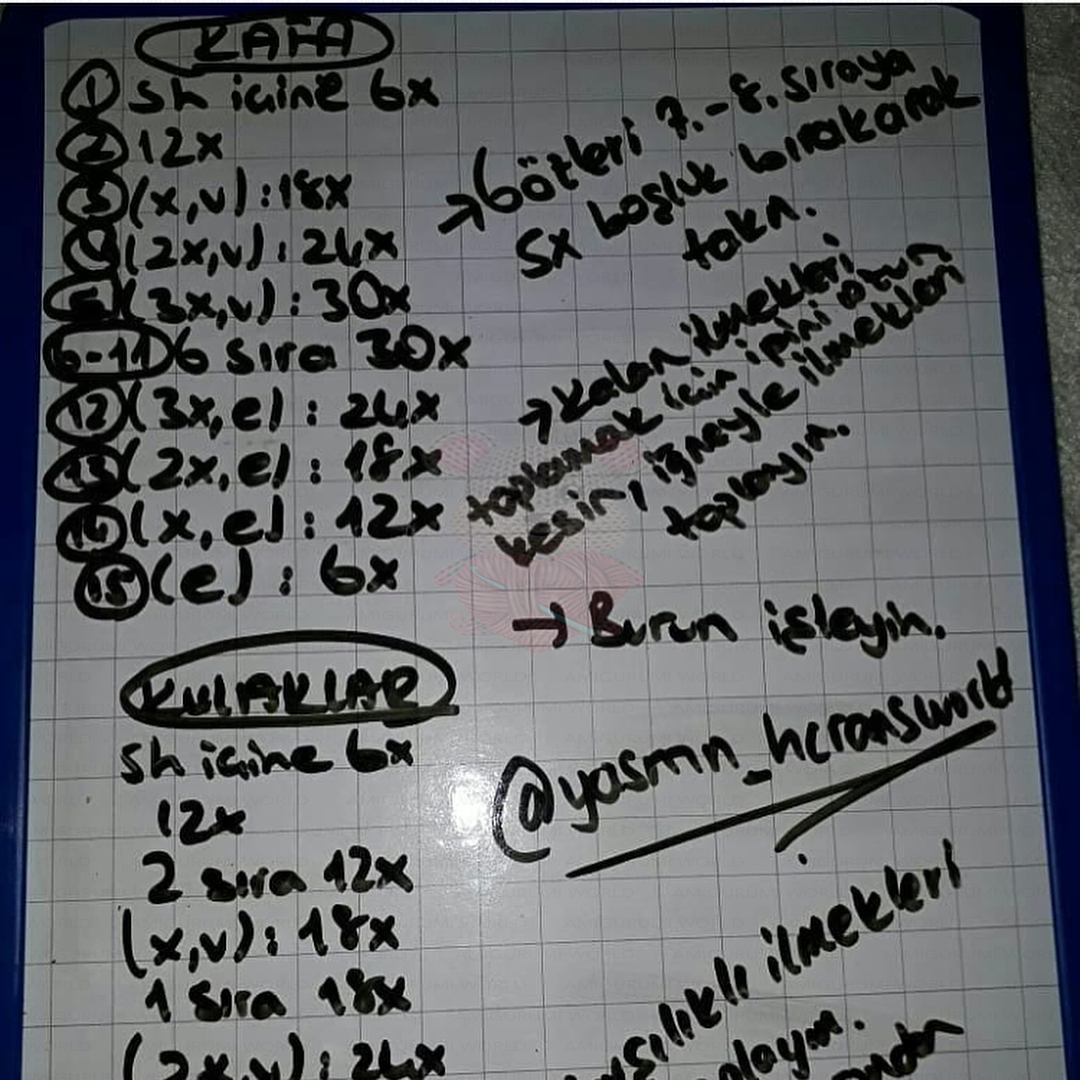 KAFA
1 sh içine 6x
2 12x
3 (x,v):18x
4 (2x,v): 24x
5 (3x,v): 30x
6-11 6 sıra 30x
12 (3x,e) : 24x
13 (2x,e) : 18x
14 (x,e) : 12x
15 (e) : 6x
→ Gözleri 7.-8. sıraya
5x boşluk bırakarak
takın.
→ Kalan ilmekleri
toplamak için ipini uzun
kesin, iğneyle ilmekleri
toplayın.
→ Burun işleyin.
@yasmn_hcransworld
KULAKLAR
sh içine 6x
12x
2 sıra 12x
(x,v): 18x
1 sıra 18x
(2x,v): 24x
ilmekleri